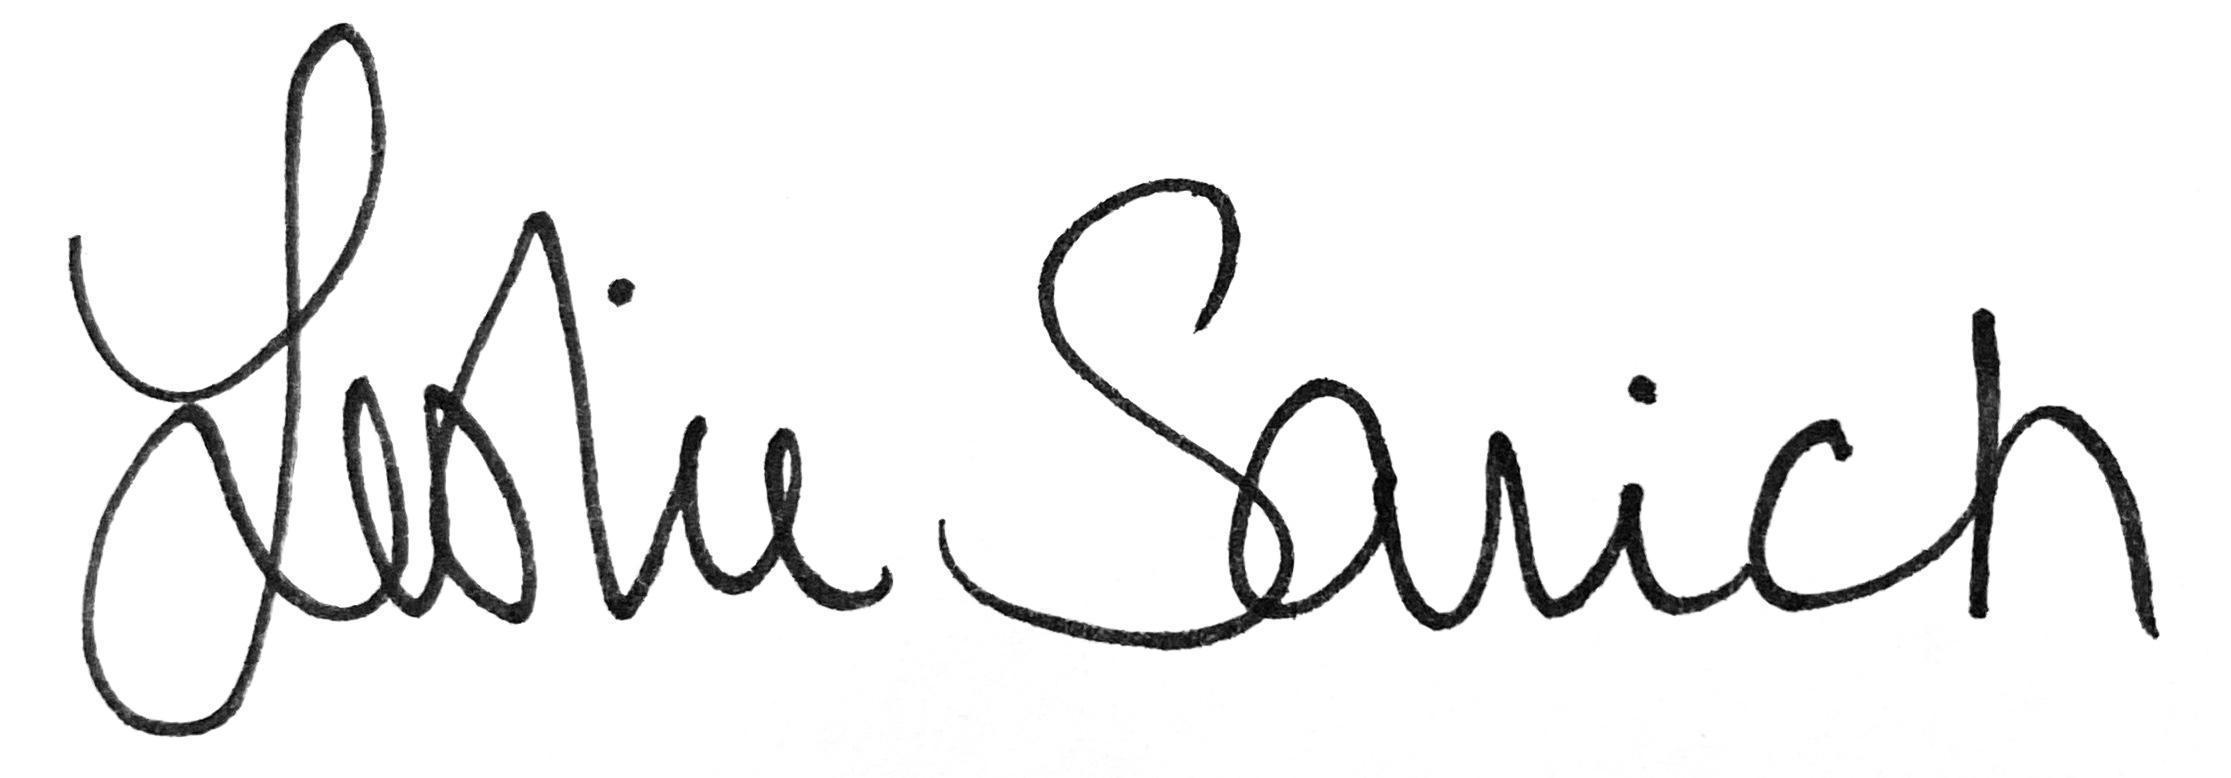 Leslie Sarich